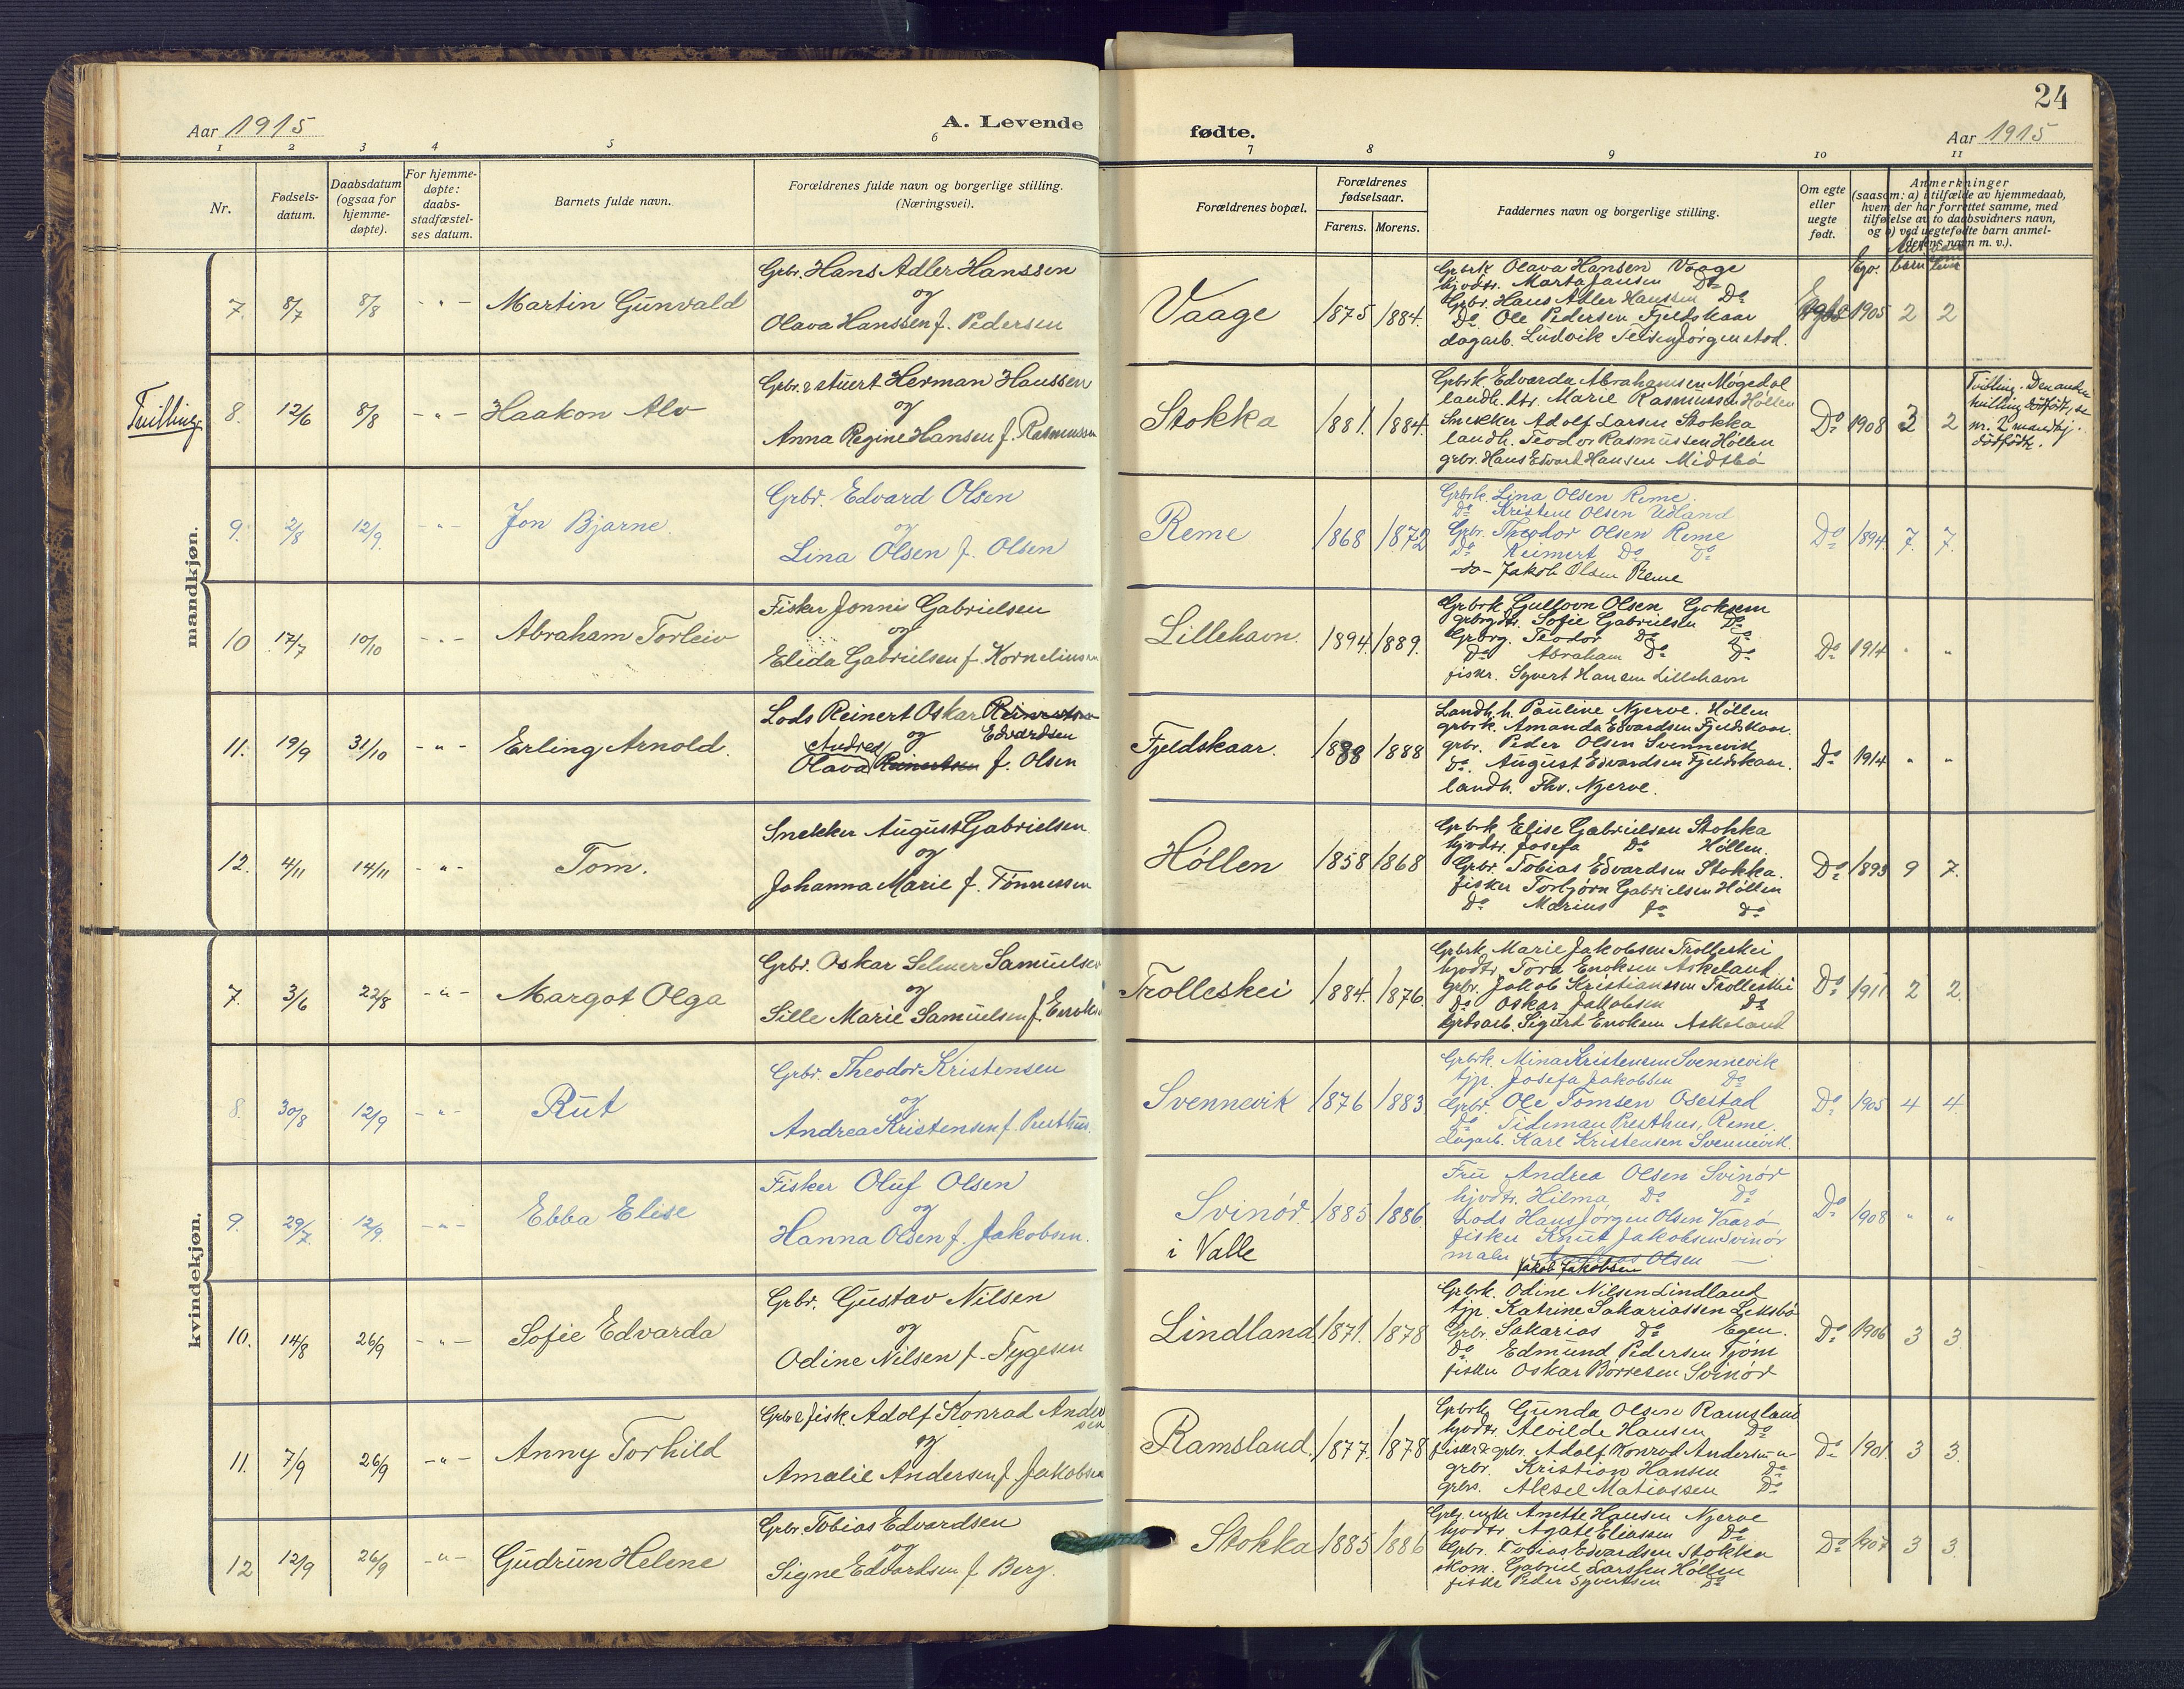 24
Aar 1915
A. Levende
fødte.
Aar 1915
1 2 3 4 5 6 7 8 9 10 11
Nr.
Fødsels-
datum.
Daabsdatum
(ogsaa for
hjemme-
døpte).
For hjemme-
døpte:
daabs-
stadfæstel-
ses datum.
Barnets fulde navn.
Forældrenes fulde navn og borgerlige stilling.
(Næringsvei).
Forældrenes bopæl.
Forældrenes
fødselsaar.
Farens. Morens.
Faddernes navn og borgerlige stilling.
Om egte
eller
uegte
født.
Anmerkninger
(saasom: a) i tilfælde av hjemmedaab,
hvem der har forrettet samme, med
tilføielse av to daabsvidners navn,
og b) ved uegtefødte barn anmel-
derens navn m. v.).
mandkjøn.
7. 8/7 8/8 - " - Martin Gunvald
Grbr. Hans Adler Hanssen
og
Olava Hanssen f. Pedersen
Vaage 1875 1884.
Grbrk Olava Hansen Vaage
hjvdtr. Marta Jansen Do
Grbr. Hans Adler Hanssen Do
Do Ole Pedersen Fjeldskaar
dagarb. Ludvik Jørgenstad.
1905 2 2
Tvilling
8. 12/6 8/8 - " - Haakon Alv
Grbr. & stuert Herman Hanssen
og
Anna Regine Hansen f. Rasmussen
Stokka 1881. 1884.
Grbrk. Edvarda Abrahamsen Møgedal
landh. dtr. Marie Rasmussen Høllen
Snekker Adolf Larsen Stokka
landh. Teodor Rasmussen Høllen
grbr. Hans Edvart Hansen Midtbø
Do 1908 3 2
Tvilling. Den anden
tvilling dødfødt, se
nr. 2 mandkj.
dødfødte.
9. 2/8 12/9. - " - Jon Bjarne
Grbr. Edvard Olsen
og
Lina Olsen f. Olsen
Reme 1868 1872
Grbrk. Lina Olsen Reme.
Do Kristene Olsen Udland
Grbr. Theodor Olsen Reme
Do Reimert Do Do
-do- Jakob Olsen Reme
Do 1894. 7. 7.
10 17/7 10/10 - " - Abraham Torleiv
Fisker Jonni Gabrielsen
og
Elida Gabrielsen f. Korneliussen
Lillehavn. 1894. 1889.
Grbrk Gullovn Olsen Goksem
grbrgdtr. Sofie Gabrielsen Do
Grbrg. Teodor Do Do
Do Abraham Do Do
fiskr. Syvert Hansen Lillehavn
Do 1914 " "
11. 19/9 31/10 - " - Erling Arnold.
Lods Reinert Oskar Reinertsen
og Edvardsen
Andrea
Olava Reinertsen f. Olsen
Fjeldskaar. 1888 1888
Landh. h. Pauline Njerve. Høllen
grbrk. Amanda Edvardsen Fjeldskaar.
grbr. Peder Olsen Svennevik
Do. August Edvardsen Fjeldskaar.
landh. Thv. Njerve.
Do 1914 " "
12. 4/11 14/11 - " - Tom.
Snekker August Gabrielsen
og
Johanna Marie f. Tønnessen
Høllen 1858 1868
Grbrk. Elise Gabrielsen Stokka
hjvdtr. Josefa Do Høllen.
Grbr. Tobias Edvardsen Stokka.
fisker Torbjørn Gabrielsen Høllen
Do Marius Do Do
Do 1893 9 7.
kvindekjøn.
7. 3/6 22/8 - " - Margot Olga
Grbr. Oskar Selmer Samuelsen
og
Sille Marie Samuelsen f. Enoksen
Trolleskei 1884. 1876.
Grbrk Marie Jakobsen Trolleskei
hjvdtr. Tora Enoksen Askeland
grbr. Jakob Kristianssen Trolleskei
Do Oskar Jakobsen Do
Grbsarb. Sigurd Enoksen Askeland
Do 1911 2 2.
8. 30/8 12/9 - " - Rut
Grbr. Theodor Kristensen
og
Andrea Kristensen f. Presthus.
Svennevik 1876 1883
Grbrk. Mina Kristensen Svennevik
tjp. Josefa Jakobsen Do
Grbr. Ole Tomsen Osestad
Do Tideman Presthus, Reme.
Dagarb. Karl Kristensen Svennevik
Do 1905 4 4.
9. 29/7. 12/9. - " - Ebba Elise
Fisker Oluf Olsen
og
Hanna Olsen f. Jakobsen.
Svinør.
i Valle
1885 1886.
Fru Andrea Olsen Svinør
hjvdtr. Hilma Do Do
Lods Hans Jørgen Olsen Vaarø
fisker Knut Jakobsen Svinør
maler Andreas Olsen —
Jakob Jakobsen
Do 1908 " "
10. 14/8 26/9 - " - Sofie Edvarda
Grbr. Gustav Nilsen
og
Odine Nilsen f. Tygesen
Lindland. 1871. 1878
Grbrk. Odine Nilsen Lindland
tjp. Katrine Sakariassen Leksbø
Grbr. Sakarias Do Egen.
Do Edmund Pedersen Tjøm
fisker Oskar Børresen Svinør
Do 1906 3 3.
11. 7/9 26/9 - " - Anny Torhild
Grbr & fisk. Adolf Konrad Ander
sen
og
Amalie Andersen f. Jakobsen
Ramsland. 1877. 1878
Grbrk. Gunda Olsen Ramsland
hjvdtr. Alvilde Hansen Do
fisker & grbr. Adolf Konrad Andersen
grbr. Kristian Hansen Do
grbrs. Aksel Matiassen Do
Do 1901. 3 3.
12 12/9 26/9 - " - Gudrun Helene
Grbr. Tobias Edvardsen
og
Signe Edvardsen f. Berg.
Stokka 1885 1886
Anette Hansen Njerve
hjvdtr. Agate Eliassen Do
Grbr. Tobias Edvardsen Stokka
skom. Gabriel Larssen Høllen
fisker Peder Syvertsen Do
Do 1907 3 3.